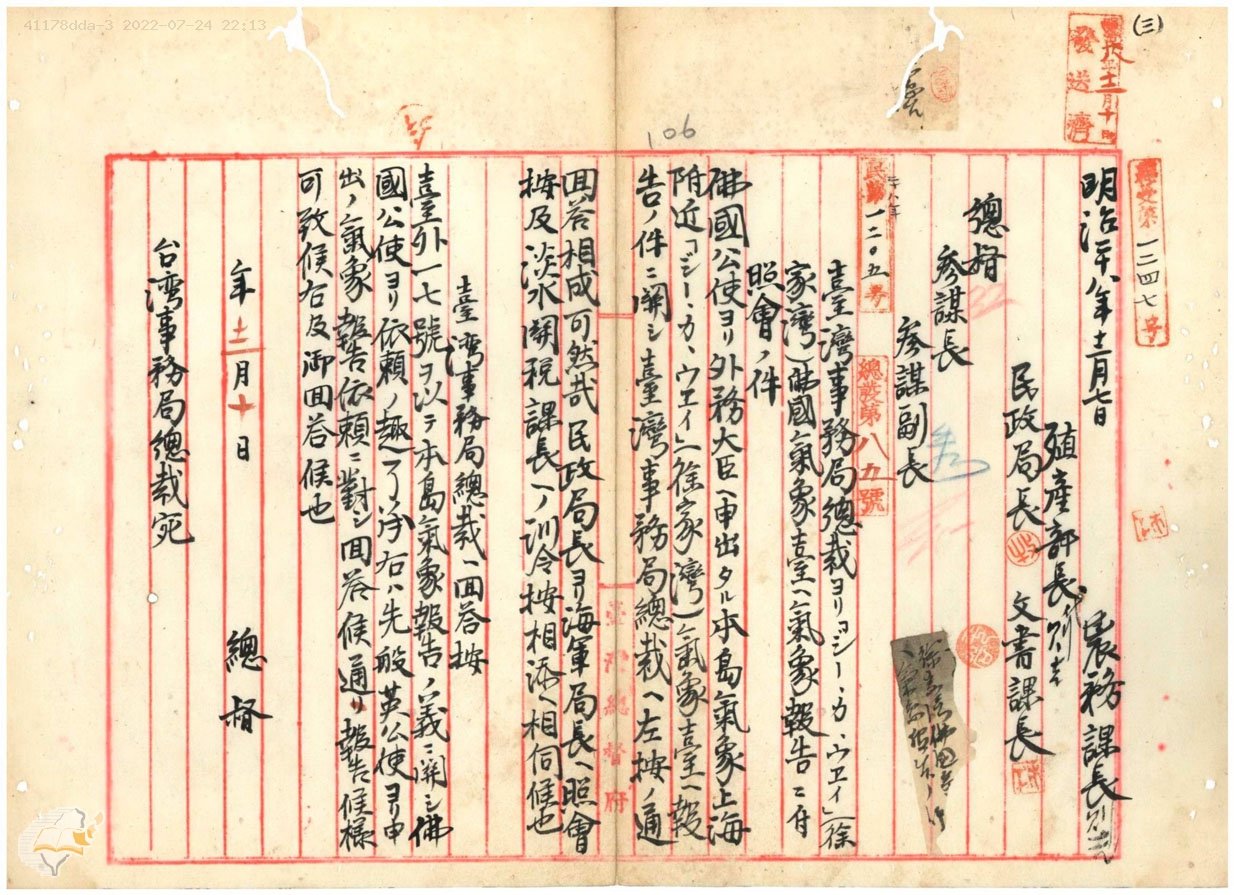 41178dda-3 2022-07-24 22:13
(三)
發送濟
106
一二四七号
明治廿八年十二月七日
農務課長
殖産部長
民政局長
文書課長
總督
参謀長
参謀副長
民第一二〇五号
總發第八五號
臺灣事務局總裁ヨリ「ヨシー、カ、ウエイ」(徐
家灣)佛國氣象臺ヘ氣象報告ニ付
照會ノ件
佛國公使ヨリ外務大臣ヘ申出タル本島氣象上海
附近「ヨシー、カ、ウエイ」(徐家灣)氣象臺ヘ報
告ノ件ニ関シ臺灣事務局總裁ヘ左按ノ通
回答相成可然哉民政局長ヨリ海軍局長ヘ照會
按及淡水関税課長ヘノ訓令按相添ヘ相伺候也
臺灣事務局總裁ヘ回答按
臺外一七號ヲ以テ本島氣象報告ノ義ニ関シ佛
國公使ヨリ依頼ノ趣了承右ハ先般英公使ヨリ申
出ノ氣象報告依頼ニ對シ回答候通リ報告候様
可致候右及御回答候也
年十二月十日
總督
台湾事務局總裁宛
臺灣總督府